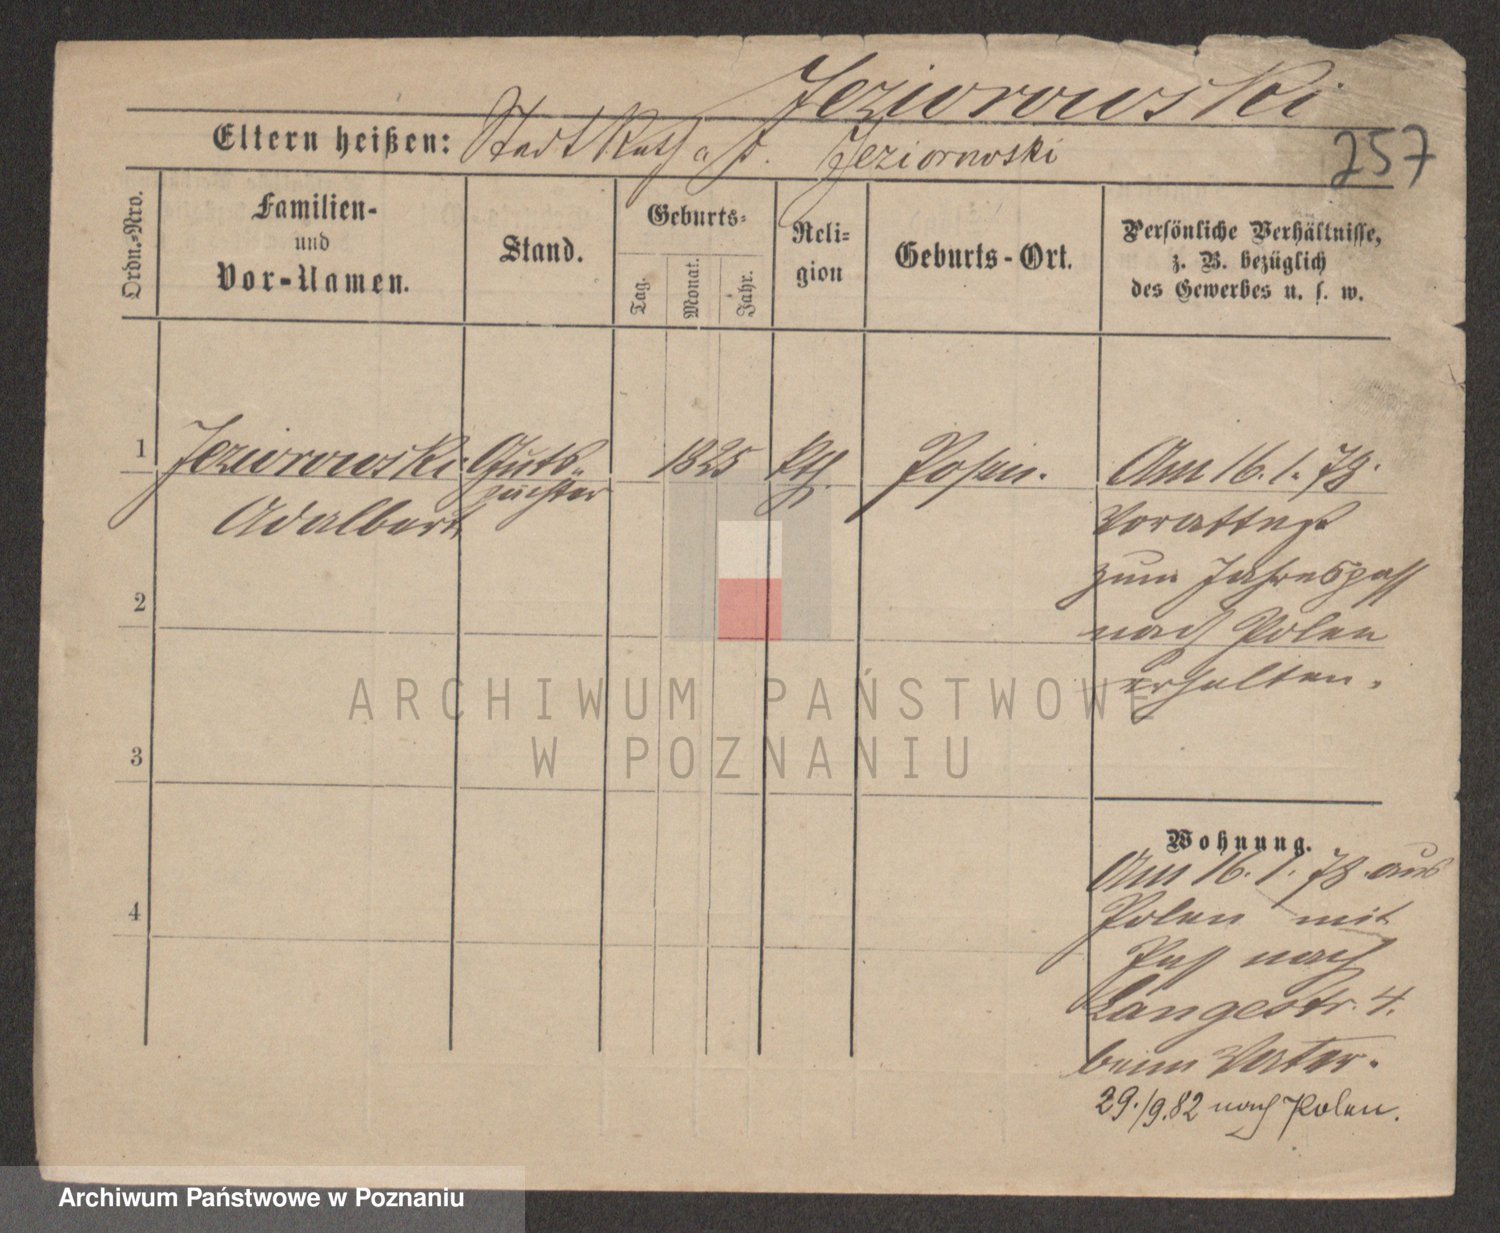 Jeziorowski
Eltern heißen: Stadt Rath a. D. Jeziorowski
257
Ordn.-Nro.
Familien-
und
Vor-Namen.
Stand.
Geburts-
Tag.
Monat.
Jahr.
Reli-
gion
Geburts-Ort.
Persönliche Verhältnisse,
z. B. bezüglich
des Gewerbes u. s. w.
1
Jeziorowski Guts- 1825 kth. Posen. Am 16.1.78.
Adalbert
Vorattest
zum Jahrespass
2
nach Polen
erhalten.
ARCHIWUM PAŃSTWOWE
W POZNANIU
3
Wohnung.
Am 16.1.78 aus
4
Polen mit
Pass nach
Langestr. 4.
beim Vater.
29./9.82 nach Polen.
Archiwum Państwowe w Poznaniu